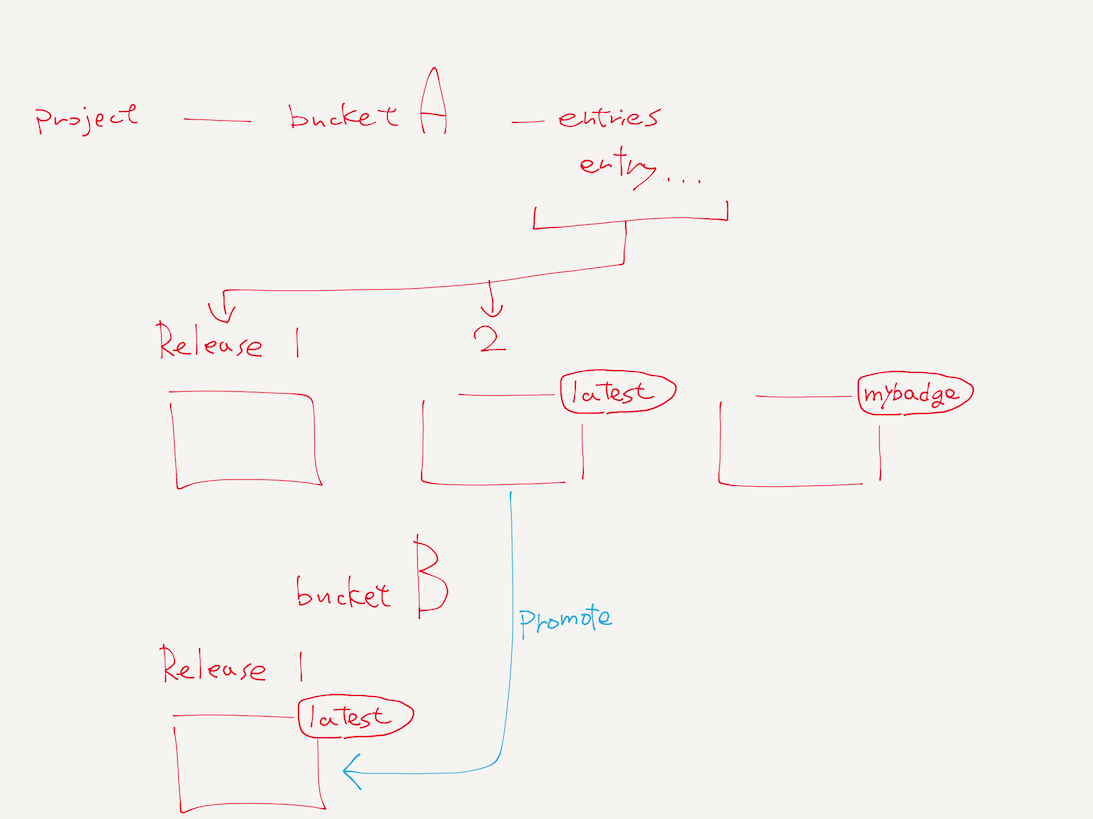 project — bucket A — entries
entry...
Release 1
2
latest
mybadge
bucket B
promote
Release 1
latest